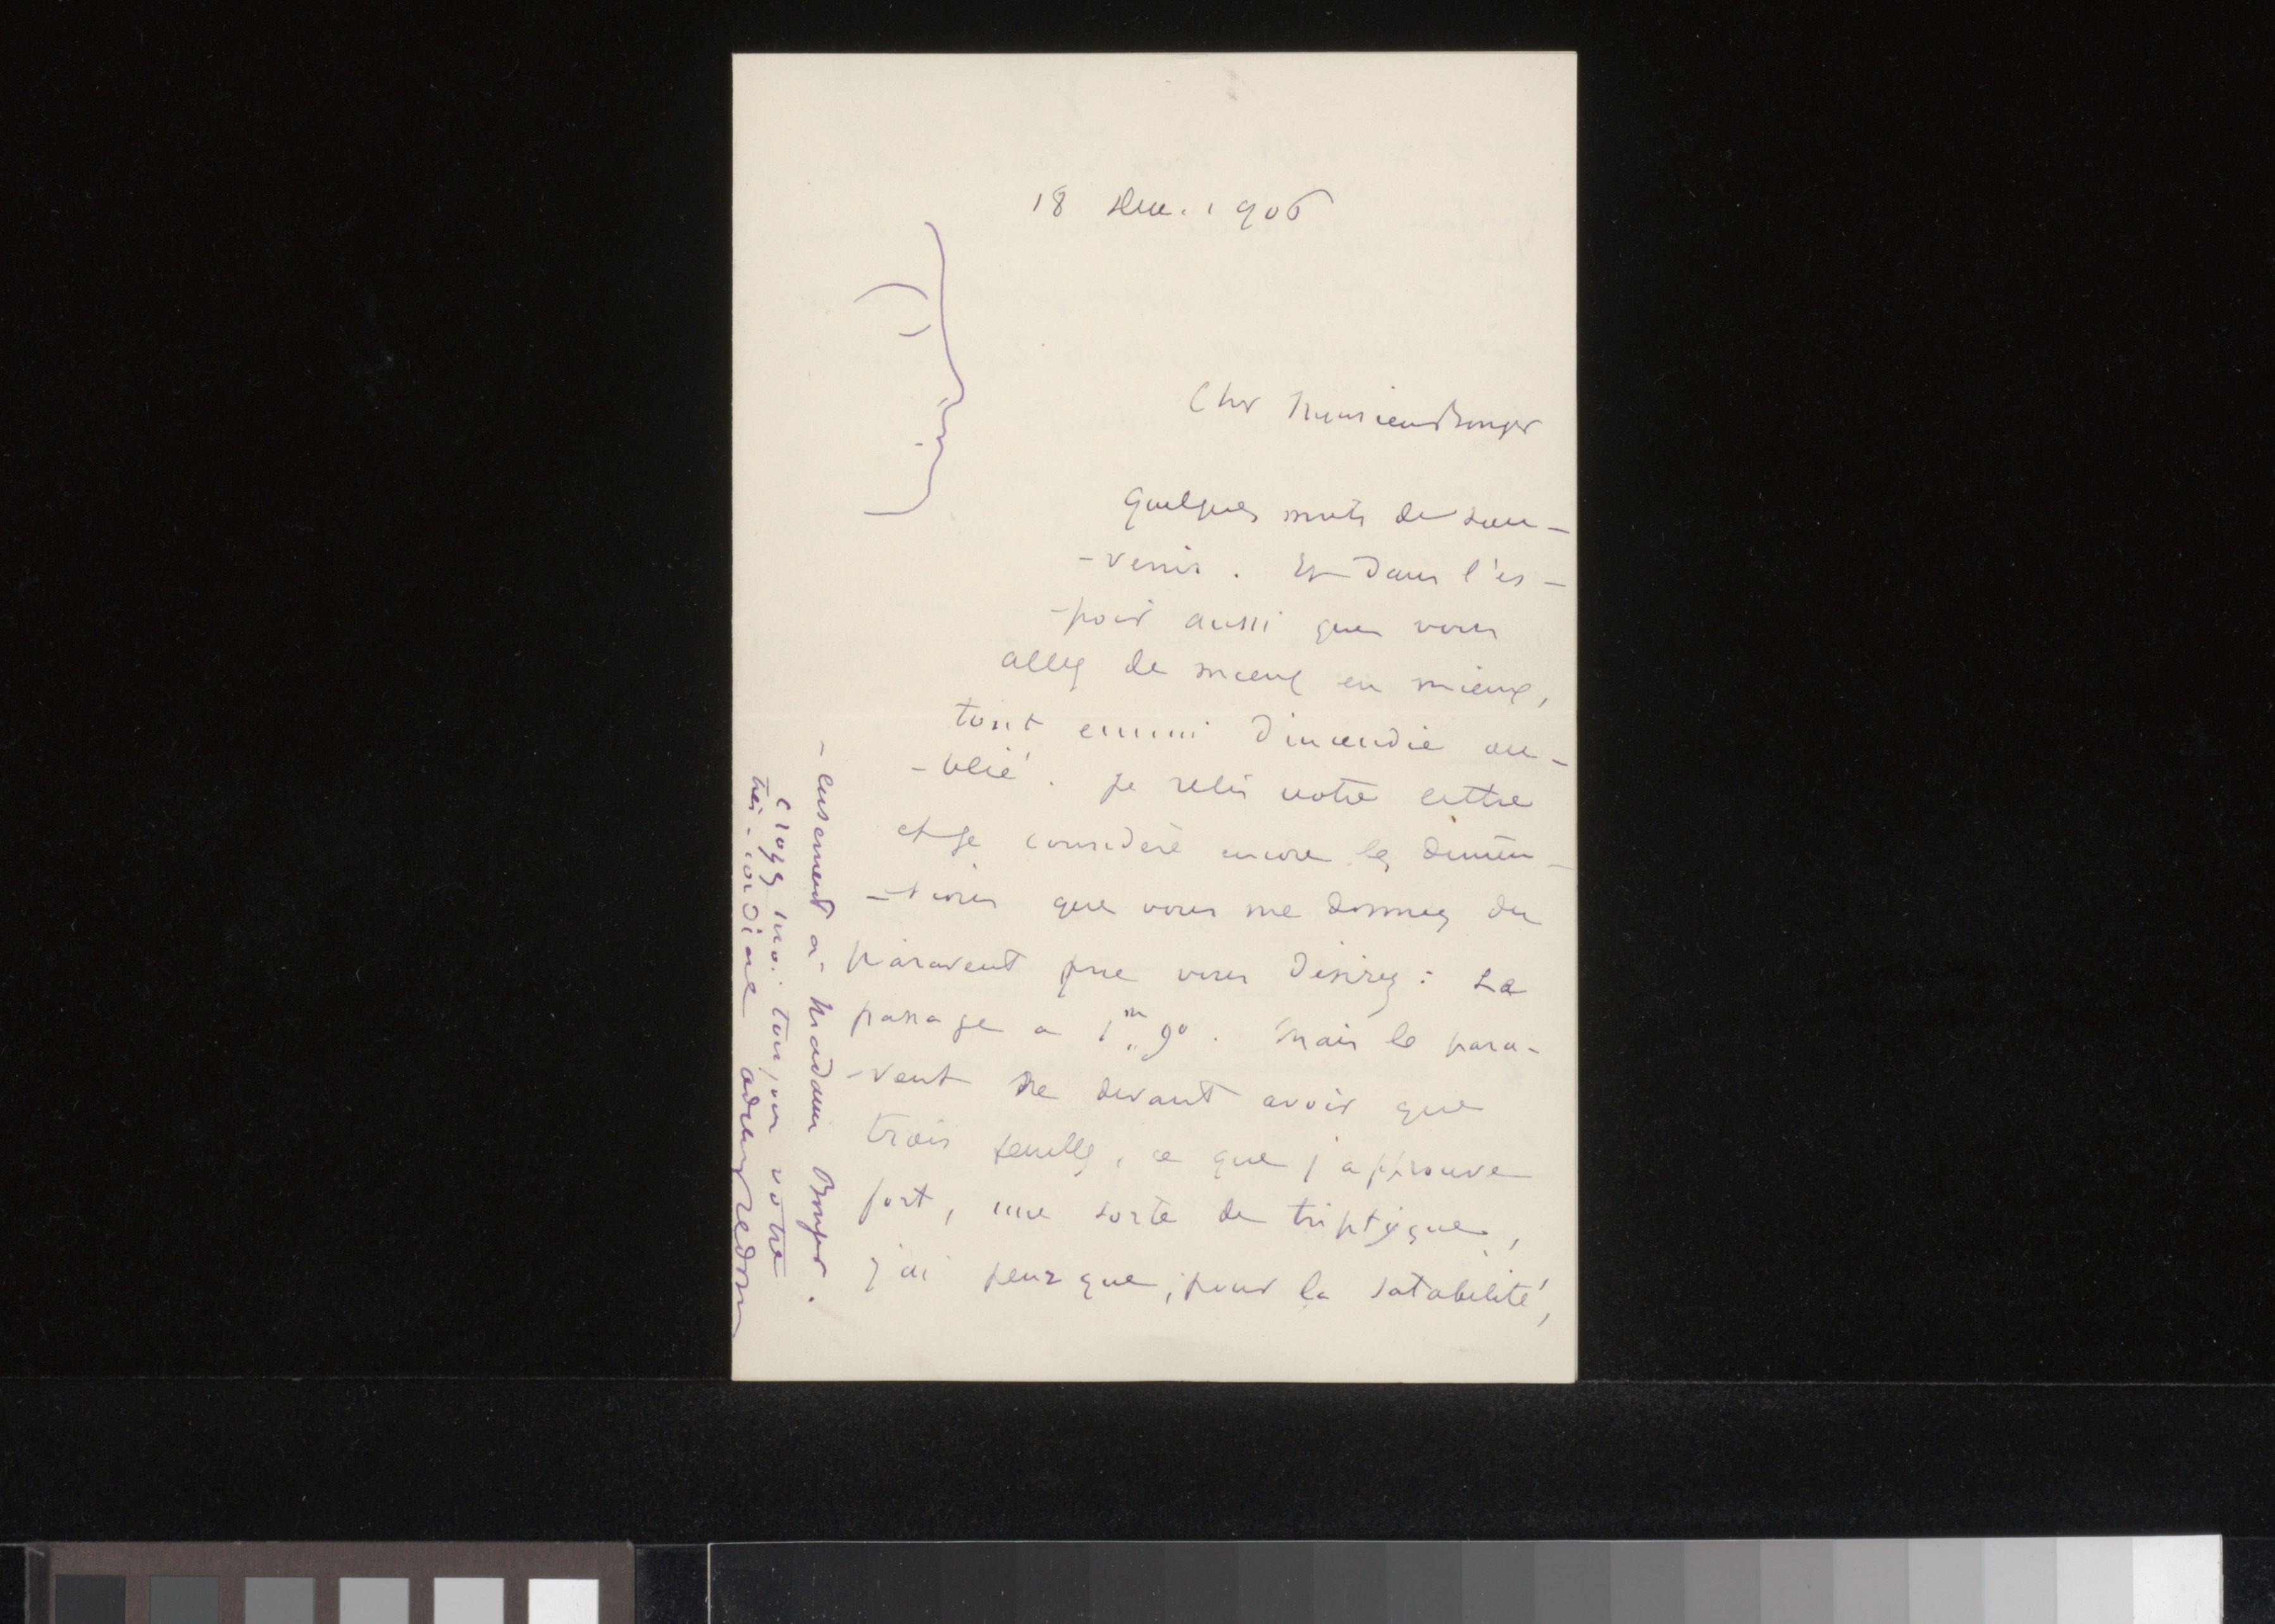 18 Dec. 1906
Cher Monsieur Bonger
Quelques mots de sou-
-venir. Et dans l'es-
-poir aussi que vous
allez de mieux en mieux,
tout ennui d'incendie ou-
-blié. Je relis votre lettre
et je considère encore les dimen-
-sions que vous me donnez du
paravent que vous désirez : Le
passage a 1m,,90. Mais le para-
-vent ne devant avoir que
trois feuilles, ce que j'approuve
fort, une sorte de triptyque,
j'ai peur que, pour la satabilité,
-eusement à Madame Bonger.
Croyez moi toujours votre
très-cordial Odilon Redon